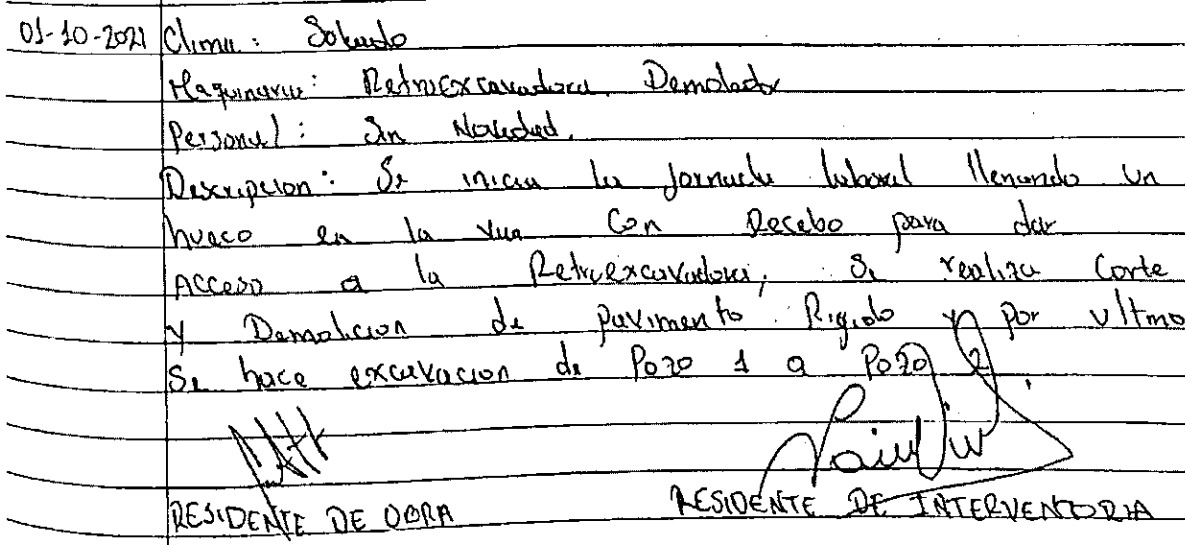 01-10-2021 Clima: Soleado
Maquinaria: Retroexcavadora, Demoledor
Personal: Sin Novedad.
Descripcion: Se inicia la jornada laboral llenando un
hueco en la via Con Recebo para dar
Acceso a la Retroexcavadora, Se realiza Corte
y Demolicion de pavimento Rigido y por ultmo
Se hace excavacion de Pozo 1 a Pozo 2.
RESIDENTE DE OBRA RESIDENTE DE INTERVENTORIA